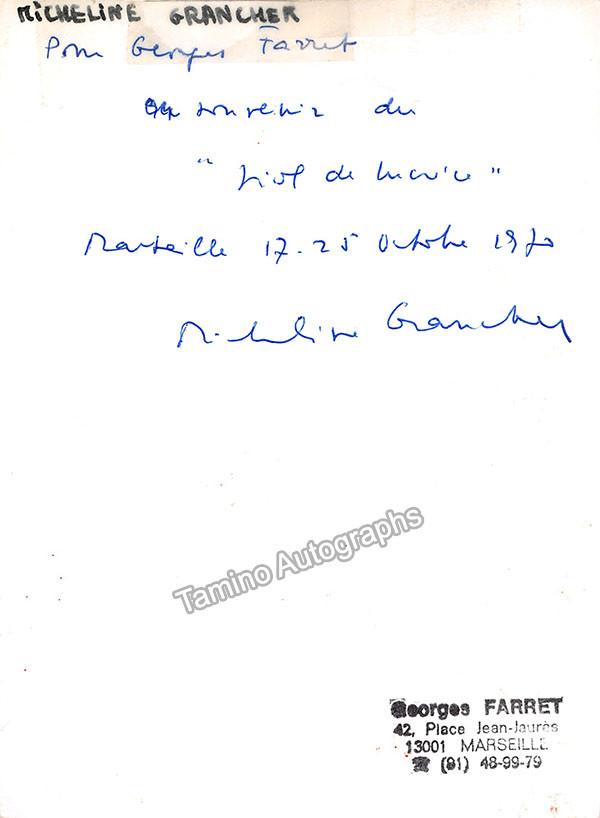 MICHELINE GRANCHER
Pour Georges Farret
en souvenir du
"Viol de Lucrèce"
Marseille 17-25 Octobre 1970
Micheline Grancher
Tamino Autographs
Georges FARRET
42, Place Jean-Jaurès
13001 MARSEILLE
☎ (91) 48-99-79